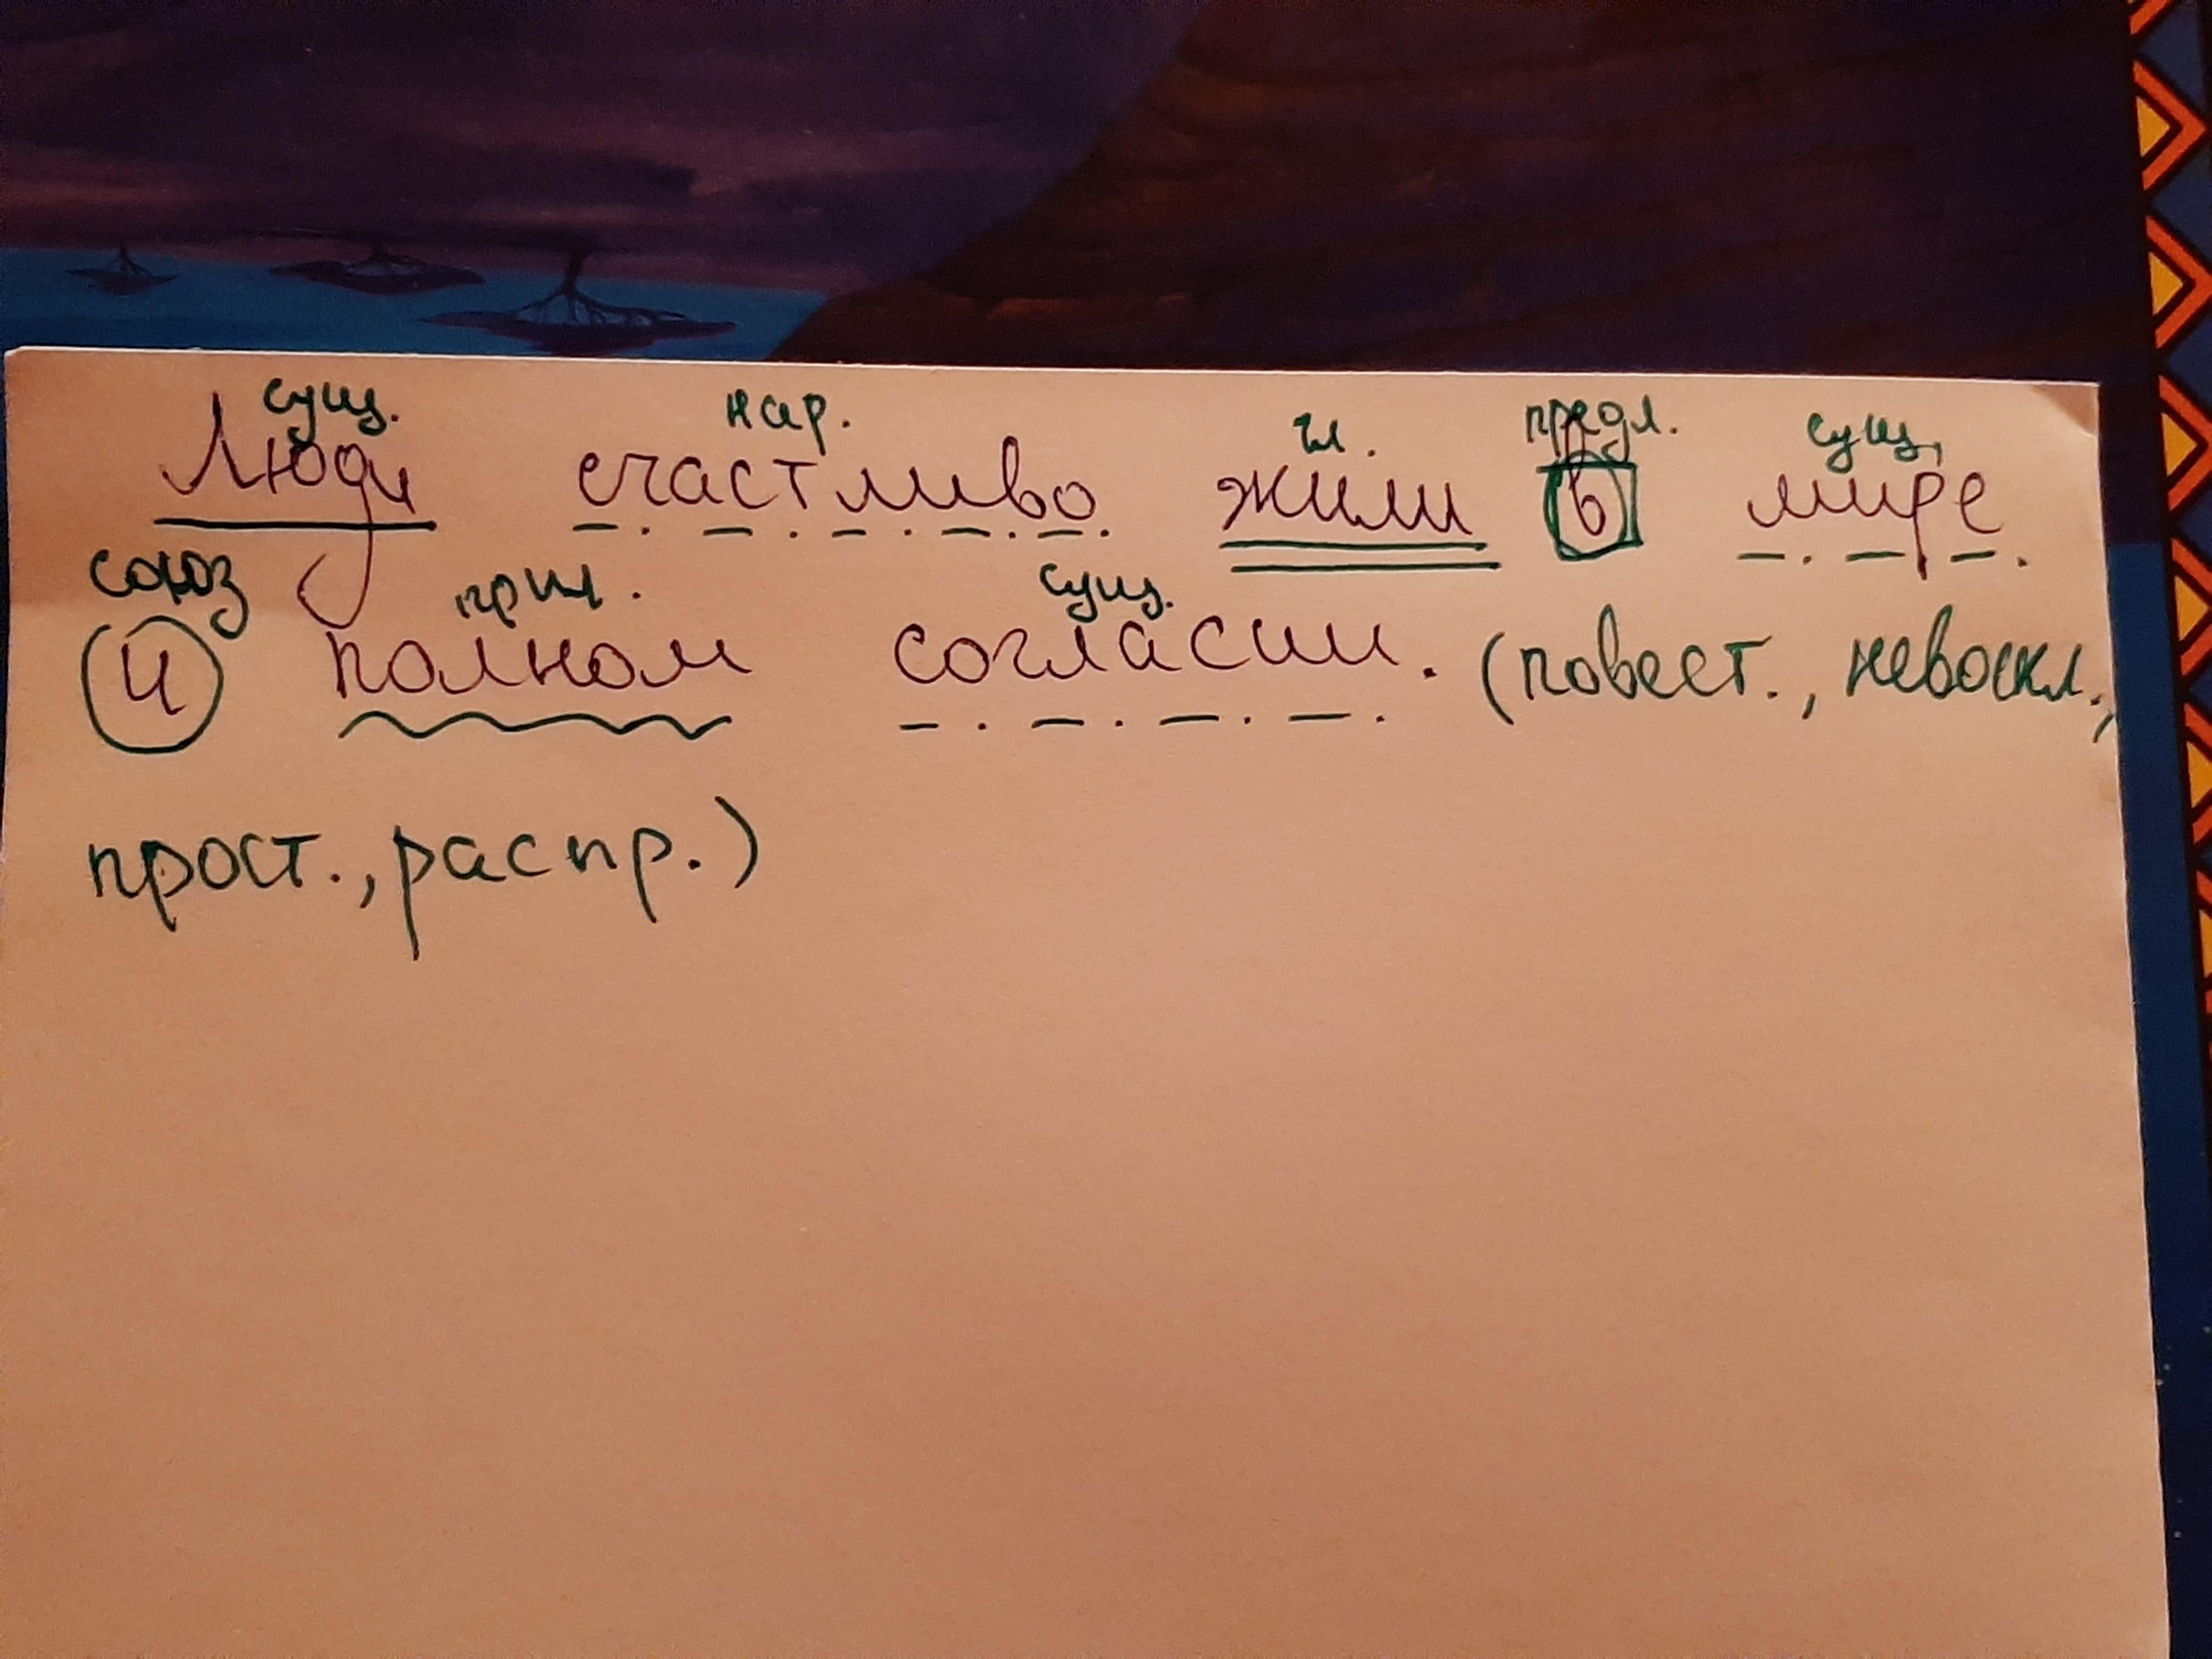 сущ. нар. гл. предл. сущ.
Люди счастливо жили в мире
союз прил. сущ.
и полном согласии. (повест., невоскл.,
прост., распр.)